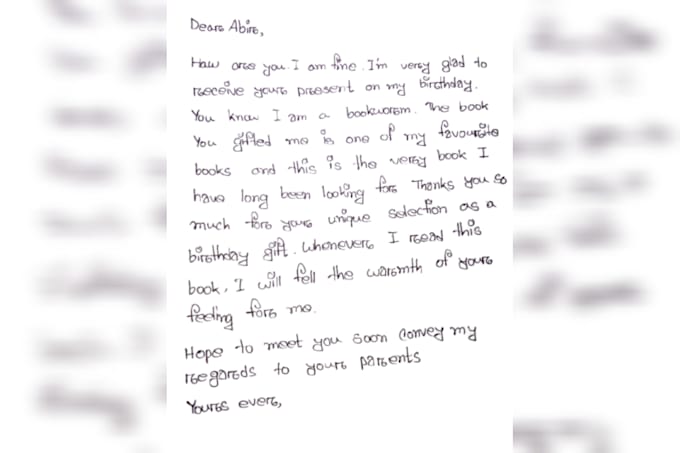 Dear Abir,
How are you. I am fine. I'm very glad to
receive your present on my birthday.
You know I am a bookworm. The book
You gifted me is one of my favourite
books and this is the very book I
have long been looking for Thanks you so
much for your unique selection as a
birthday gift. Whenever I read this
book, I will fell the warmth of your
feeling for me.
Hope to meet you soon Convey my
regards to your parents
Yours ever,